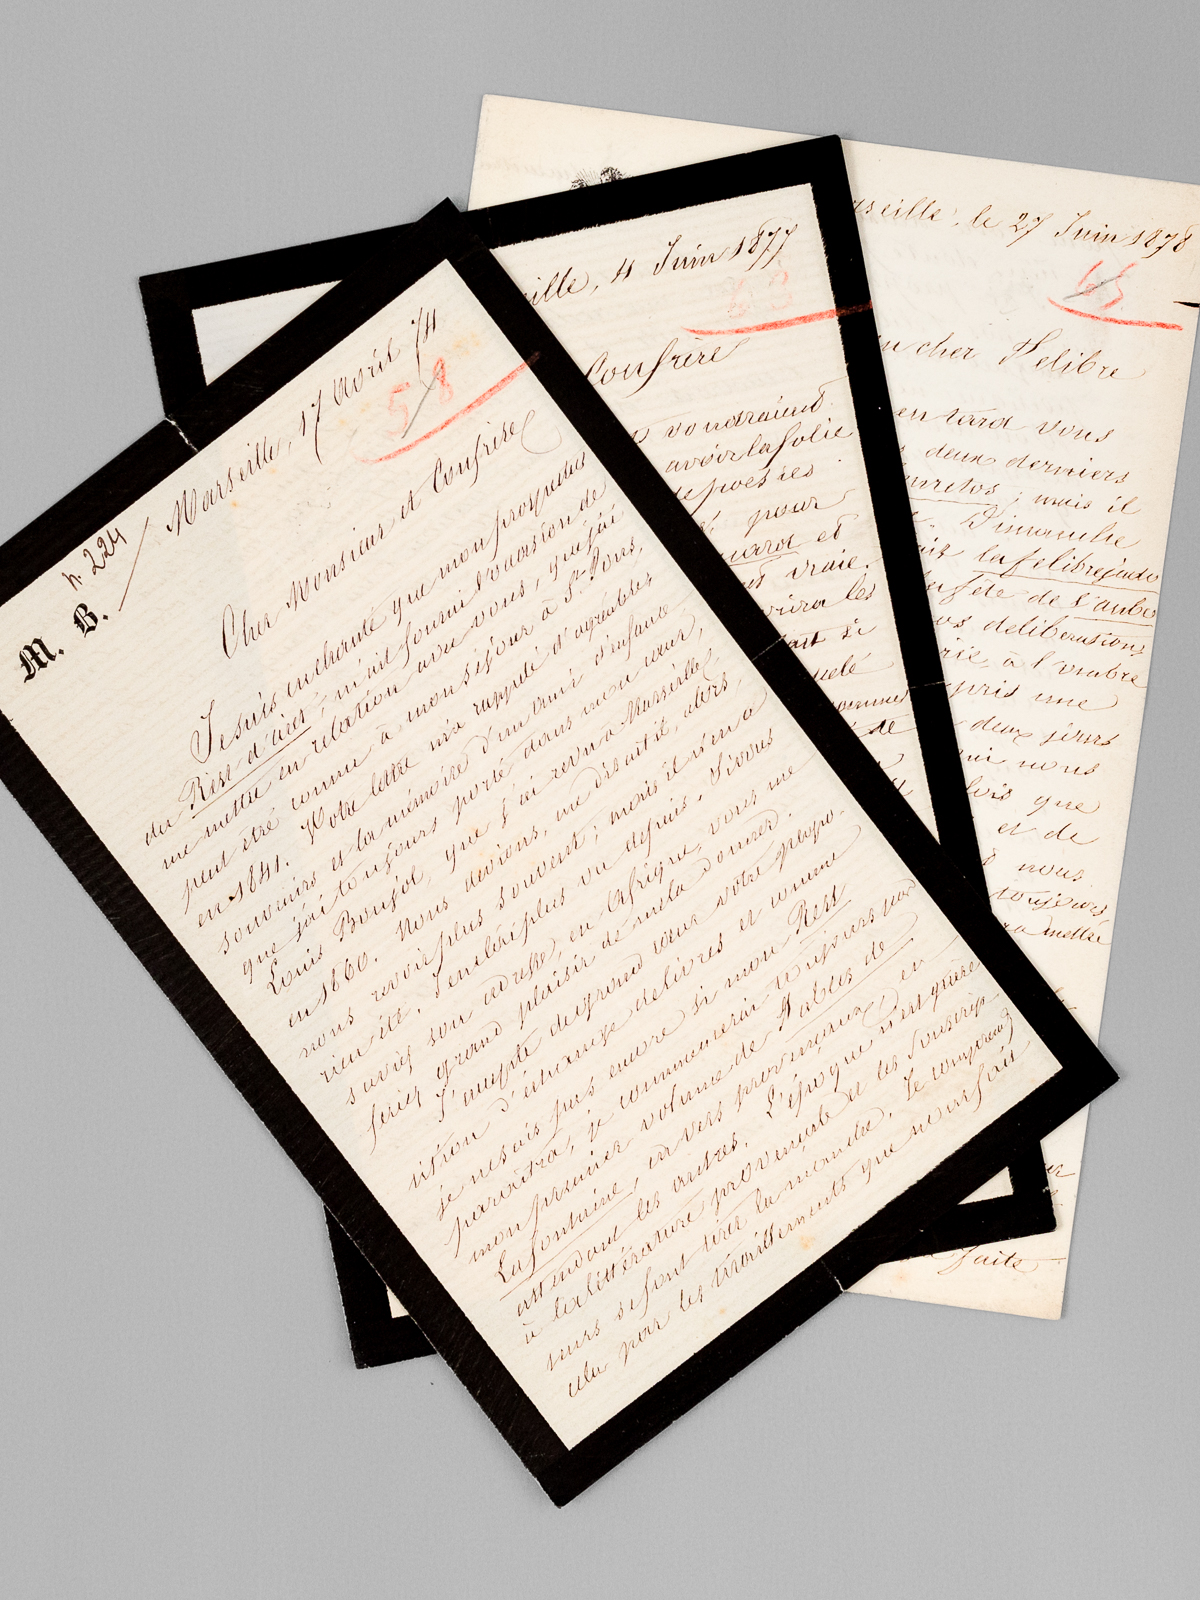 n. 224
M. B.
Marseille, 17 Août 74
58
Cher Monsieur et Confrère
Je suis enchanté que mon prospectus
du Rest d'aiet, m'ait fourni l'occasion de
me mettre en relation avec vous, que j'ai
peut être connu à mon séjour à St-Pons,
en 1841. Votre lettre m'a rappelé d'agréables
souvenirs et la mémoire d'un ami d'enfance
que j'ai toujours porté dans mon cœur,
Louis Boujol, que j'ai revu à Marseille
en 1860. Nous devions, me disait il, alors
nous revoir plus souvent; mais il n'en a
rien été. Je ne l'ai plus vu depuis. Si vous
saviez son adresse, en Afrique, vous me
feriez grand plaisir de me la donner.
J'accepte de grand cœur votre propo-
sition d'échange de livres et comme
je ne sais pas encore si mon Rest
paraîtra, je commencerai toujours par
mon premier volume de Fables de
La Fontaine, en vers provençaux, en
attendant les autres. L'époque n'est guère
à la littérature provençale et les souscrip-
teurs se font tirer la manche. Je comprends
cela par les tiraillements que nous font
ille, 4 Juin 1877
63
Confrère
voudraient
avoir la folie
de poésies
pour
et
vraie.
les
si
de
rseille, le 27 Juin 1878
65
n cher Felibre
en tard vous
deux derniers
; mais il
Dimanche
la felibrejado
fête de l'aubo
os deliberations
rie, à l'ombre
pris une
deux jours
nous
fois que
et de
nous
toujours,
mettre
faits